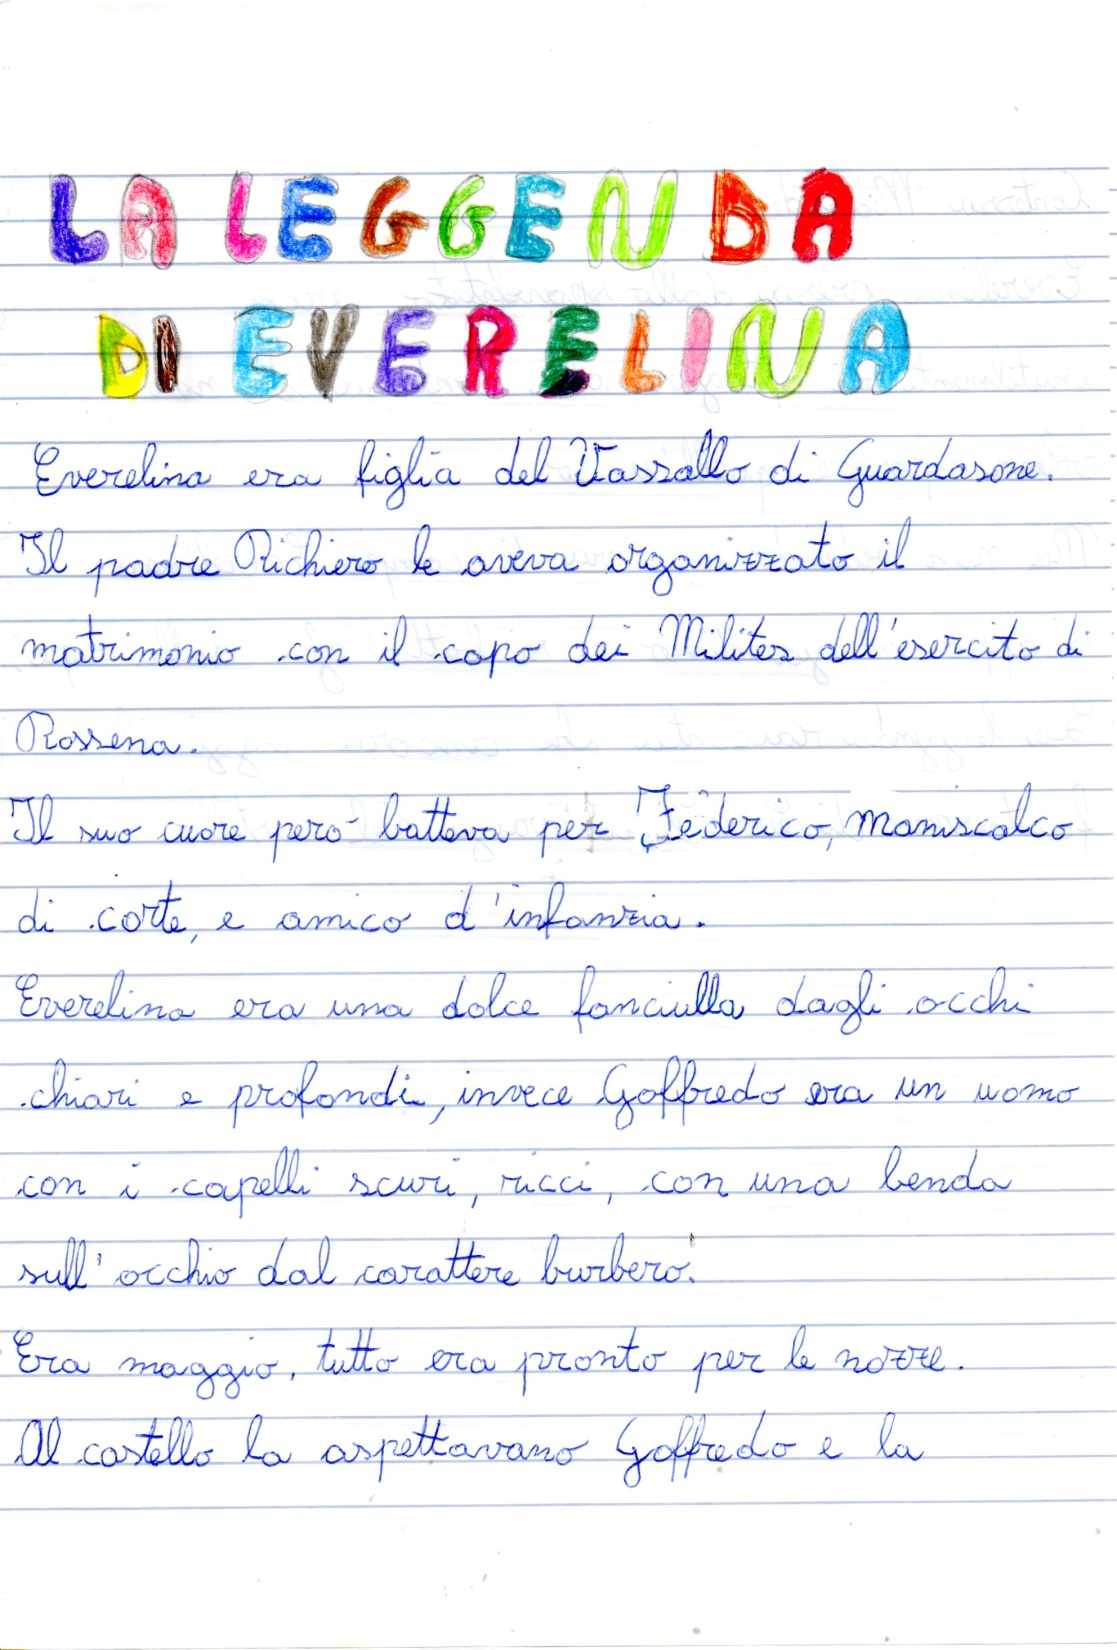 LA LEGGENDA
DI EVERELINA
Everelina era figlia del Vassallo di Guardasone.
Il padre Richiero le aveva organizzato il
matrimonio con il capo dei Milites dell'esercito di
Rossena.
Il suo cuore però batteva per Federico, maniscalco
di corte, e amico d'infanzia.
Everelina era una dolce fanciulla dagli occhi
chiari e profondi, invece Goffredo era un uomo
con i capelli scuri, ricci, con una benda
sull'occhio dal carattere burbero.
Era maggio, tutto era pronto per le nozze.
Al castello la aspettavano Goffredo e la